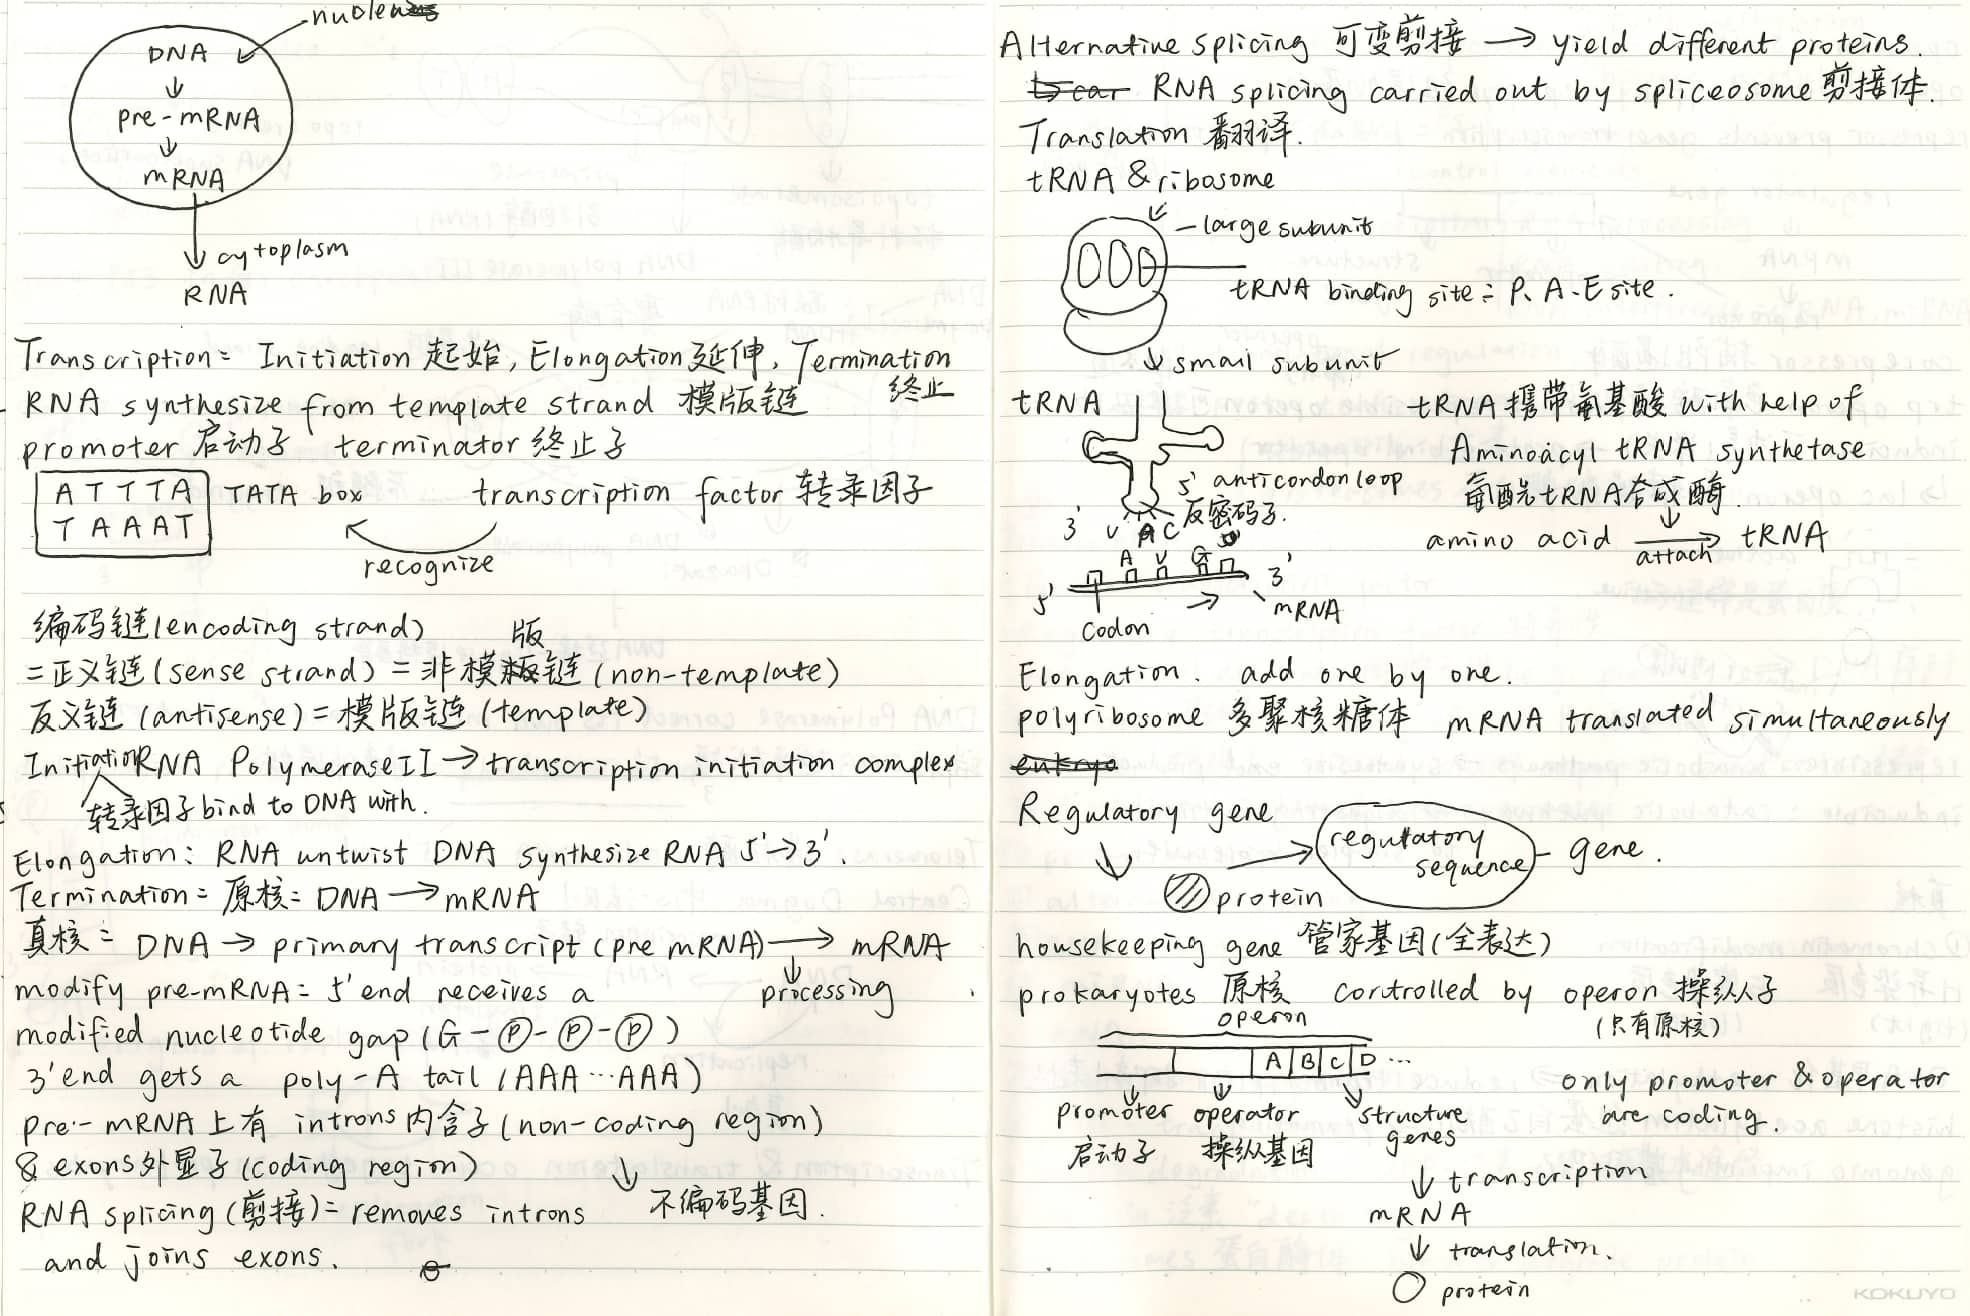 nucleus
DNA
pre-mRNA
mRNA
cytoplasm
RNA
Transcription: Initiation 起始, Elongation 延伸, Termination
终止
RNA synthesize from template strand 模版链
promoter 启动子 terminator 终止子
ATTTA TATA box transcription factor 转录因子
TAAAT
recognize
编码链(encoding strand)
版
=正义链(sense strand)=非模板链(non-template)
反义链(antisense)=模版链(template)
Initiation RNA Polymerase II → transcription initiation complex
转录因子 bind to DNA with.
Elongation: RNA untwist DNA synthesize RNA 5'→3'.
Termination: 原核: DNA → mRNA
真核: DNA → primary transcript (pre mRNA) → mRNA
processing
modify pre-mRNA: 5'end receives a
modified nucleotide gap (G-P-P-P)
3'end gets a poly-A tail (AAA…AAA)
pre-mRNA上有 introns 内含子(non-coding region)
& exons外显子(coding region)
不编码基因.
RNA splicing(剪接): removes introns
and joins exons.
Alternative splicing 可变剪接 → yield different proteins.
RNA splicing carried out by spliceosome 剪接体.
Translation 翻译.
tRNA & ribosome
large subunit
tRNA binding site: P、A、E site.
small subunit
tRNA
5' anticondon loop
反密码子.
3' U A C
A U G
5' 3'
mRNA
Codon
tRNA携带氨基酸 with help of
Aminoacyl tRNA synthetase
氨酰tRNA合成酶
amino acid → tRNA
attach
Elongation. add one by one.
polyribosome 多聚核糖体 mRNA translated simultaneously
Regulatory gene
protein
regulatory
sequence
gene.
housekeeping gene 管家基因(全表达)
prokaryotes 原核 controlled by operon 操纵子
(只有原核)
operon
A B C D …
promoter operator structure
genes
启动子 操纵基因
only promoter & operator
are coding.
transcription
mRNA
translation.
protein
KOKUYO